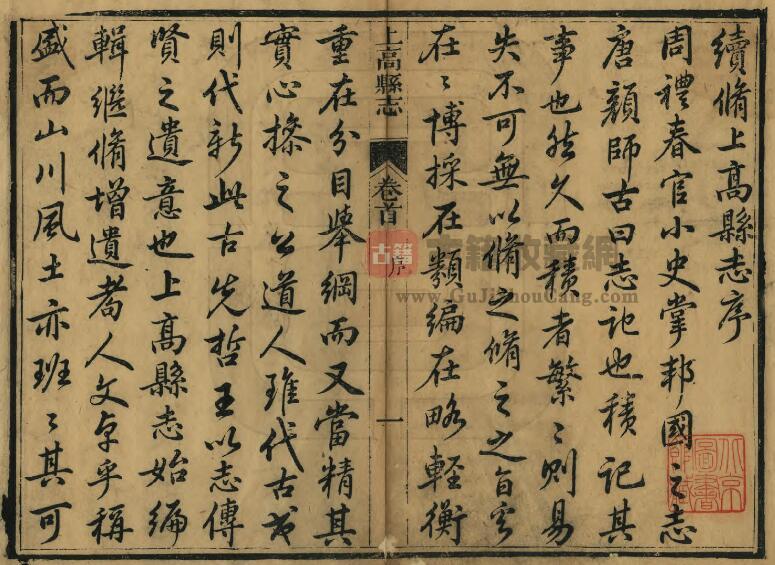 續脩上高縣志序
周禮春官小史掌邦國之志
唐顏師古曰志記也積記其
事也然久而積者繁〻則易
失不可無以脩之脩之之旨
在〻博採在類編在略輕衡
上高縣志
卷首
序
一
重在分目舉綱而又當精其
實心操之公道人雖代古
則代新此古先哲王以志傳
賢之遺意也上高縣志始編
輯繼脩增遺耆人文卓乎稱
盛而山川風土亦班〻其可
古籍
古籍收藏網
www.GuJiShouCang.com